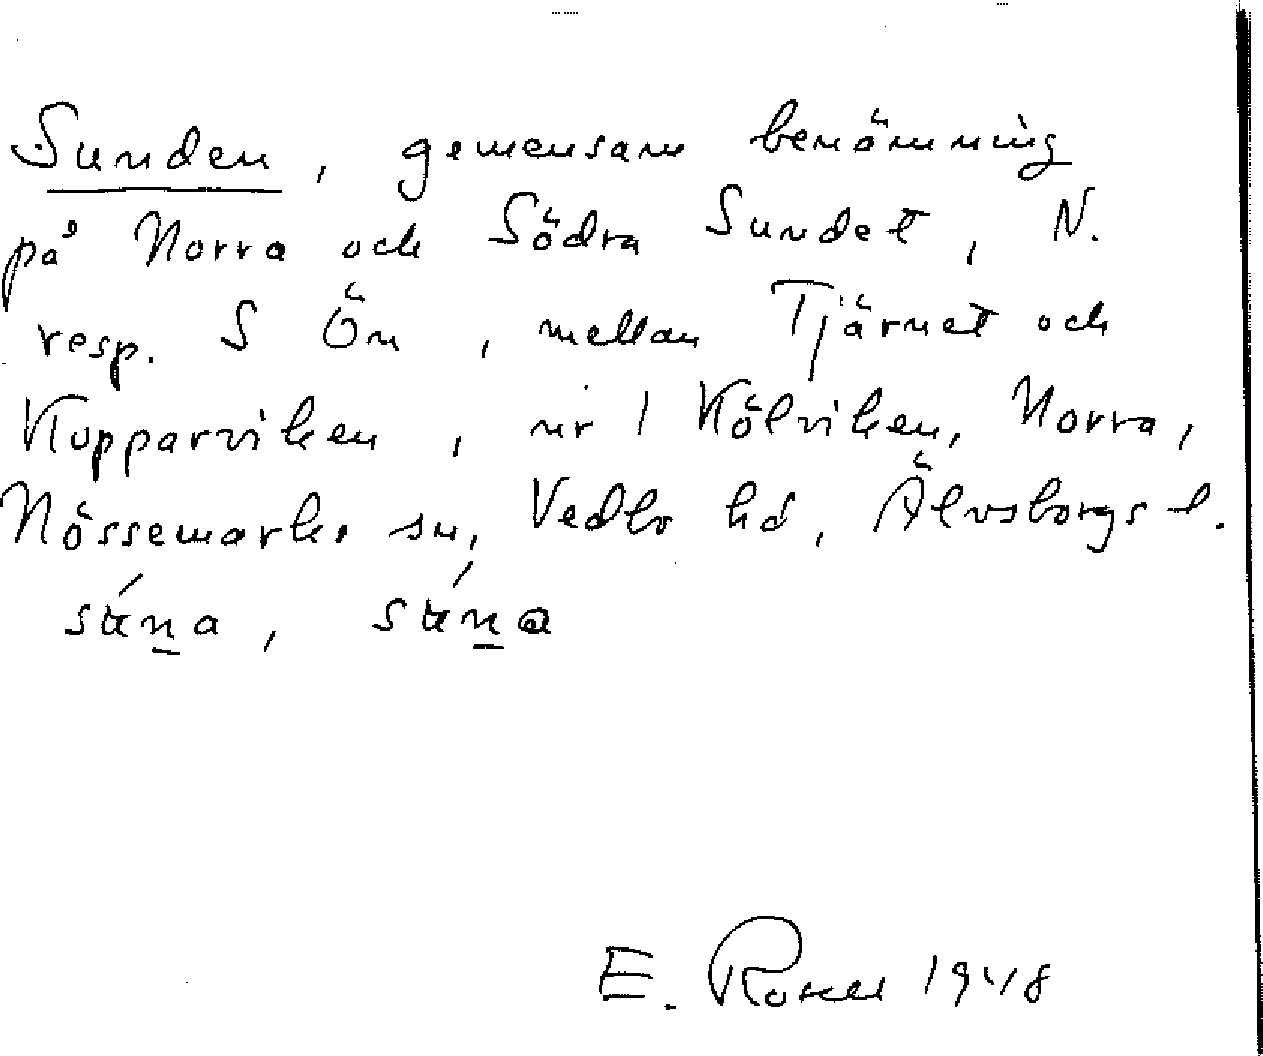 Sunden, gemensam benämning
på Norra och Södra Sundet, N.
resp. S Ön, mellan Tjärnet och
Kopparviken, nr 1 Kölviken, Norra,
Nössemarks sn, Vedbo hd, Älvsborgs l.
E. 1948